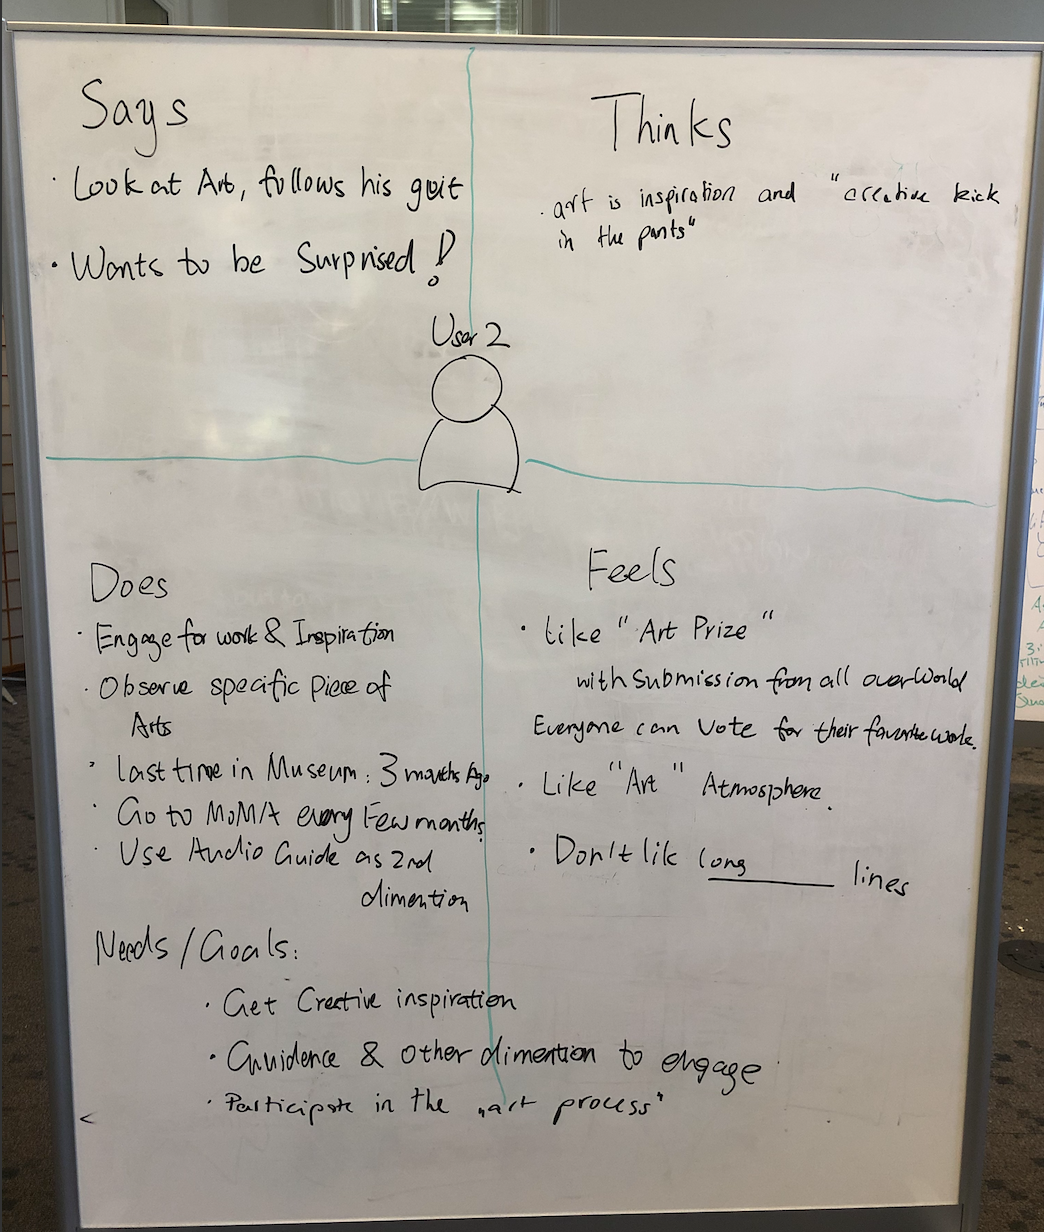 Says
· Look at Art, follows his guit
· Wants to be Surprised !
Thinks
· art is inspiration and "creative kick
in the pants"
User 2
Does
· Engage for work & Inspiration
· Observe specific piece of
Arts
· last time in Museum : 3 months Ago
· Go to MoMA every Few months
· Use Audio Guide as 2nd
dimention
Feels
· like "Art Prize"
with Submission from all over World
Everyone can Vote for their favorite work.
· Like "Art" Atmosphere.
· Don't lik long lines
Needs/Goals:
· Get Creative inspiration
· Guidence & other dimention to engage
· Participate in the "art process"